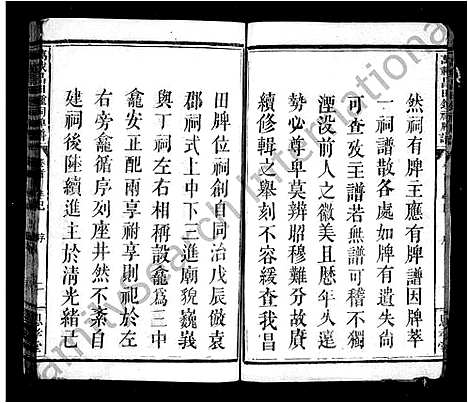 然祠有牌主應有牌譜因牌萃
一祠譜散各處如牌有遺失尚
可查攷主譜若無譜可稽不獨
湮没前人之徽美且懸年久遠
勢必尊卑莫辨昭穆難分故廣
續修輯之舉刻不容緩我昌
田牌位祠創自同治戊辰倣袁
郡祠式上中下三進廟貌巍峩
與丁祠左右相稱設龕爲三中
龕安正配兩享祔享則祀於左
右旁龕循序列座井然不紊自
建祠後陸續進主於清光緒己